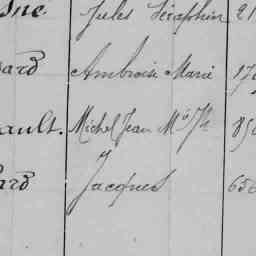 Jules Séraphin 21
ard Ambroise Marie 17
ault. Michel Jean M 85
ard Jacques 656